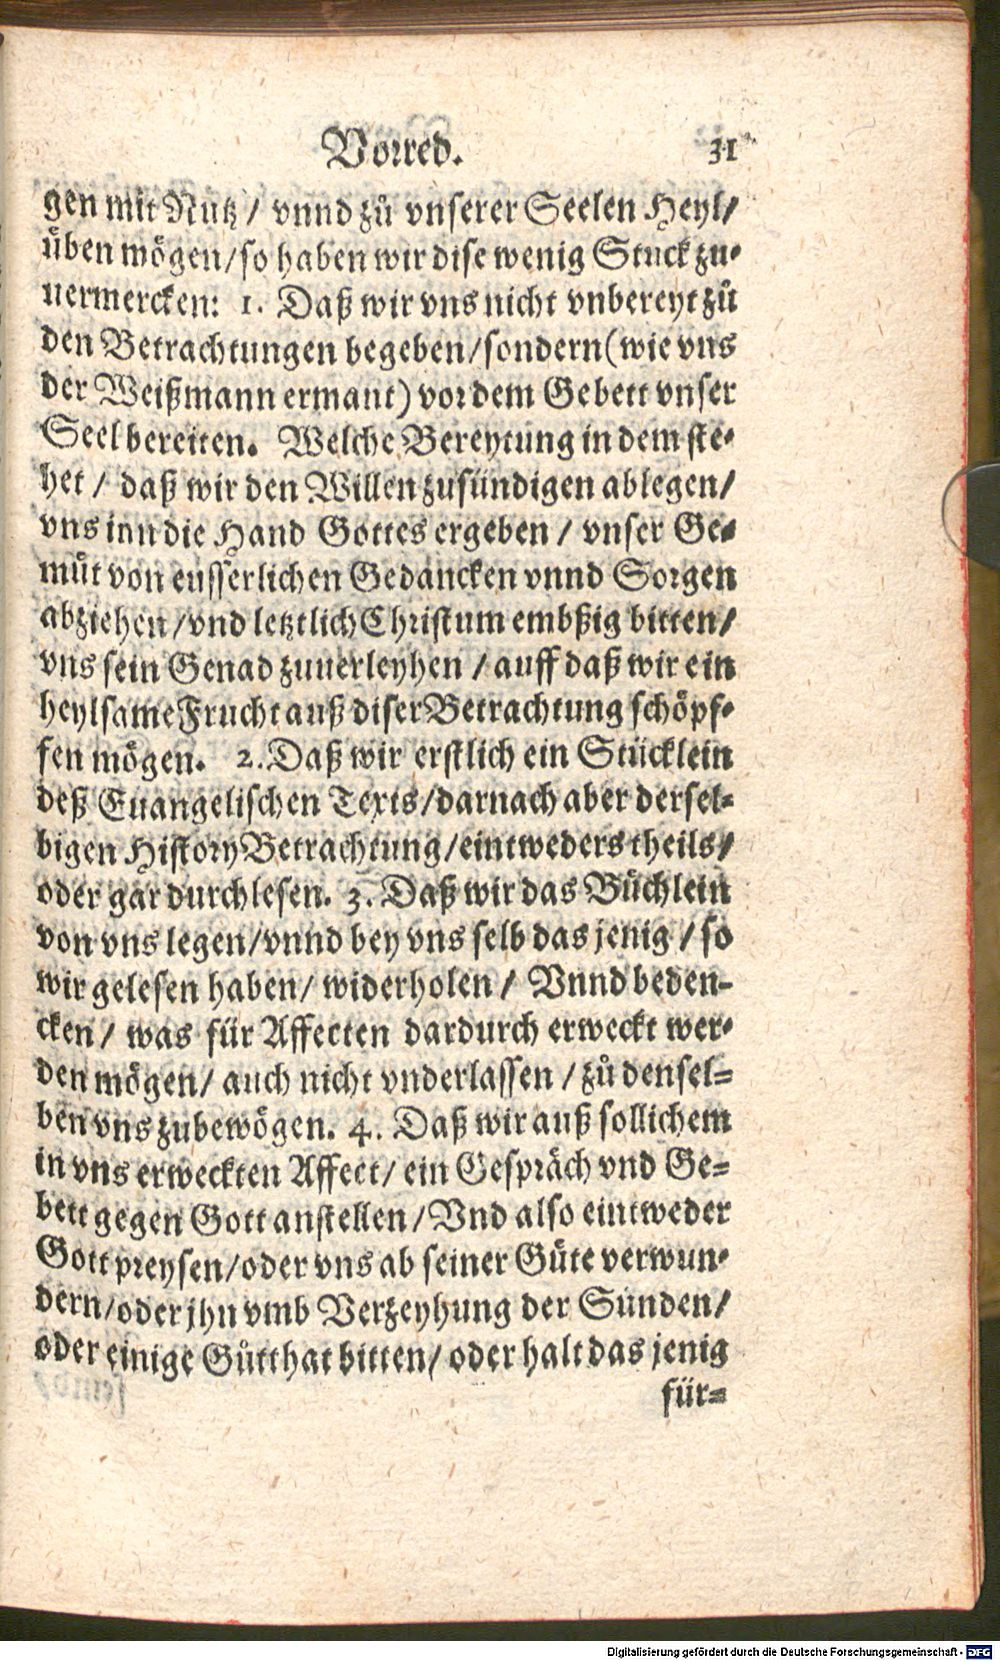 Vorred. 31
gen mit Nutz / vnnd zů vnserer Seelen Heyl/
üben mögen/so haben wir dise wenig Stuck zu-
uermercken: 1. Daß wir vns nicht vnbereyt zů
den Betrachtungen begeben/sondern(wie vns
der Weißmann ermant) vor dem Gebett vnser
Seel bereiten. Welche Bereytung in dem ste-
het / daß wir den Willen zusündigen ablegen/
vns inn die Hand Gottes ergeben / vnser Ge-
müt von eusserlichen Gedancken vnnd Sorgen
abziehen/vnd letztlich Christum embßig bitten/
vns sein Genad zuuerleyhen / auff daß wir ein
heylsame Frucht auß diser Betrachtung schöpf-
fen mögen. 2. Daß wir erstlich ein Stücklein
deß Euangelischen Texts/darnach aber dersel-
bigen History Betrachtung/eintweders theils/
oder gar durchlesen. 3. Daß wir das Büchlein
von vns legen/vnnd bey vns selb das jenig / so
wir gelesen haben/ widerholen / Vnnd beden-
cken / was für Affecten dardurch erweckt wer-
den mögen/ auch nicht vnderlassen / zů densel-
ben vns zubewögen. 4. Daß wir auß sollichem
in vns erweckten Affect/ ein Gespräch vnd Ge-
bett gegen Gott anstellen/Vnd also eintweder
Gott preysen/oder vns ab seiner Güte verwun-
dern/oder jhn vmb Verzeyhung der Sünden/
oder einige Gůtthat bitten/ oder halt das jenig
für-
Digitalisierung gefördert durch die Deutsche Forschungsgemeinschaft - DFG